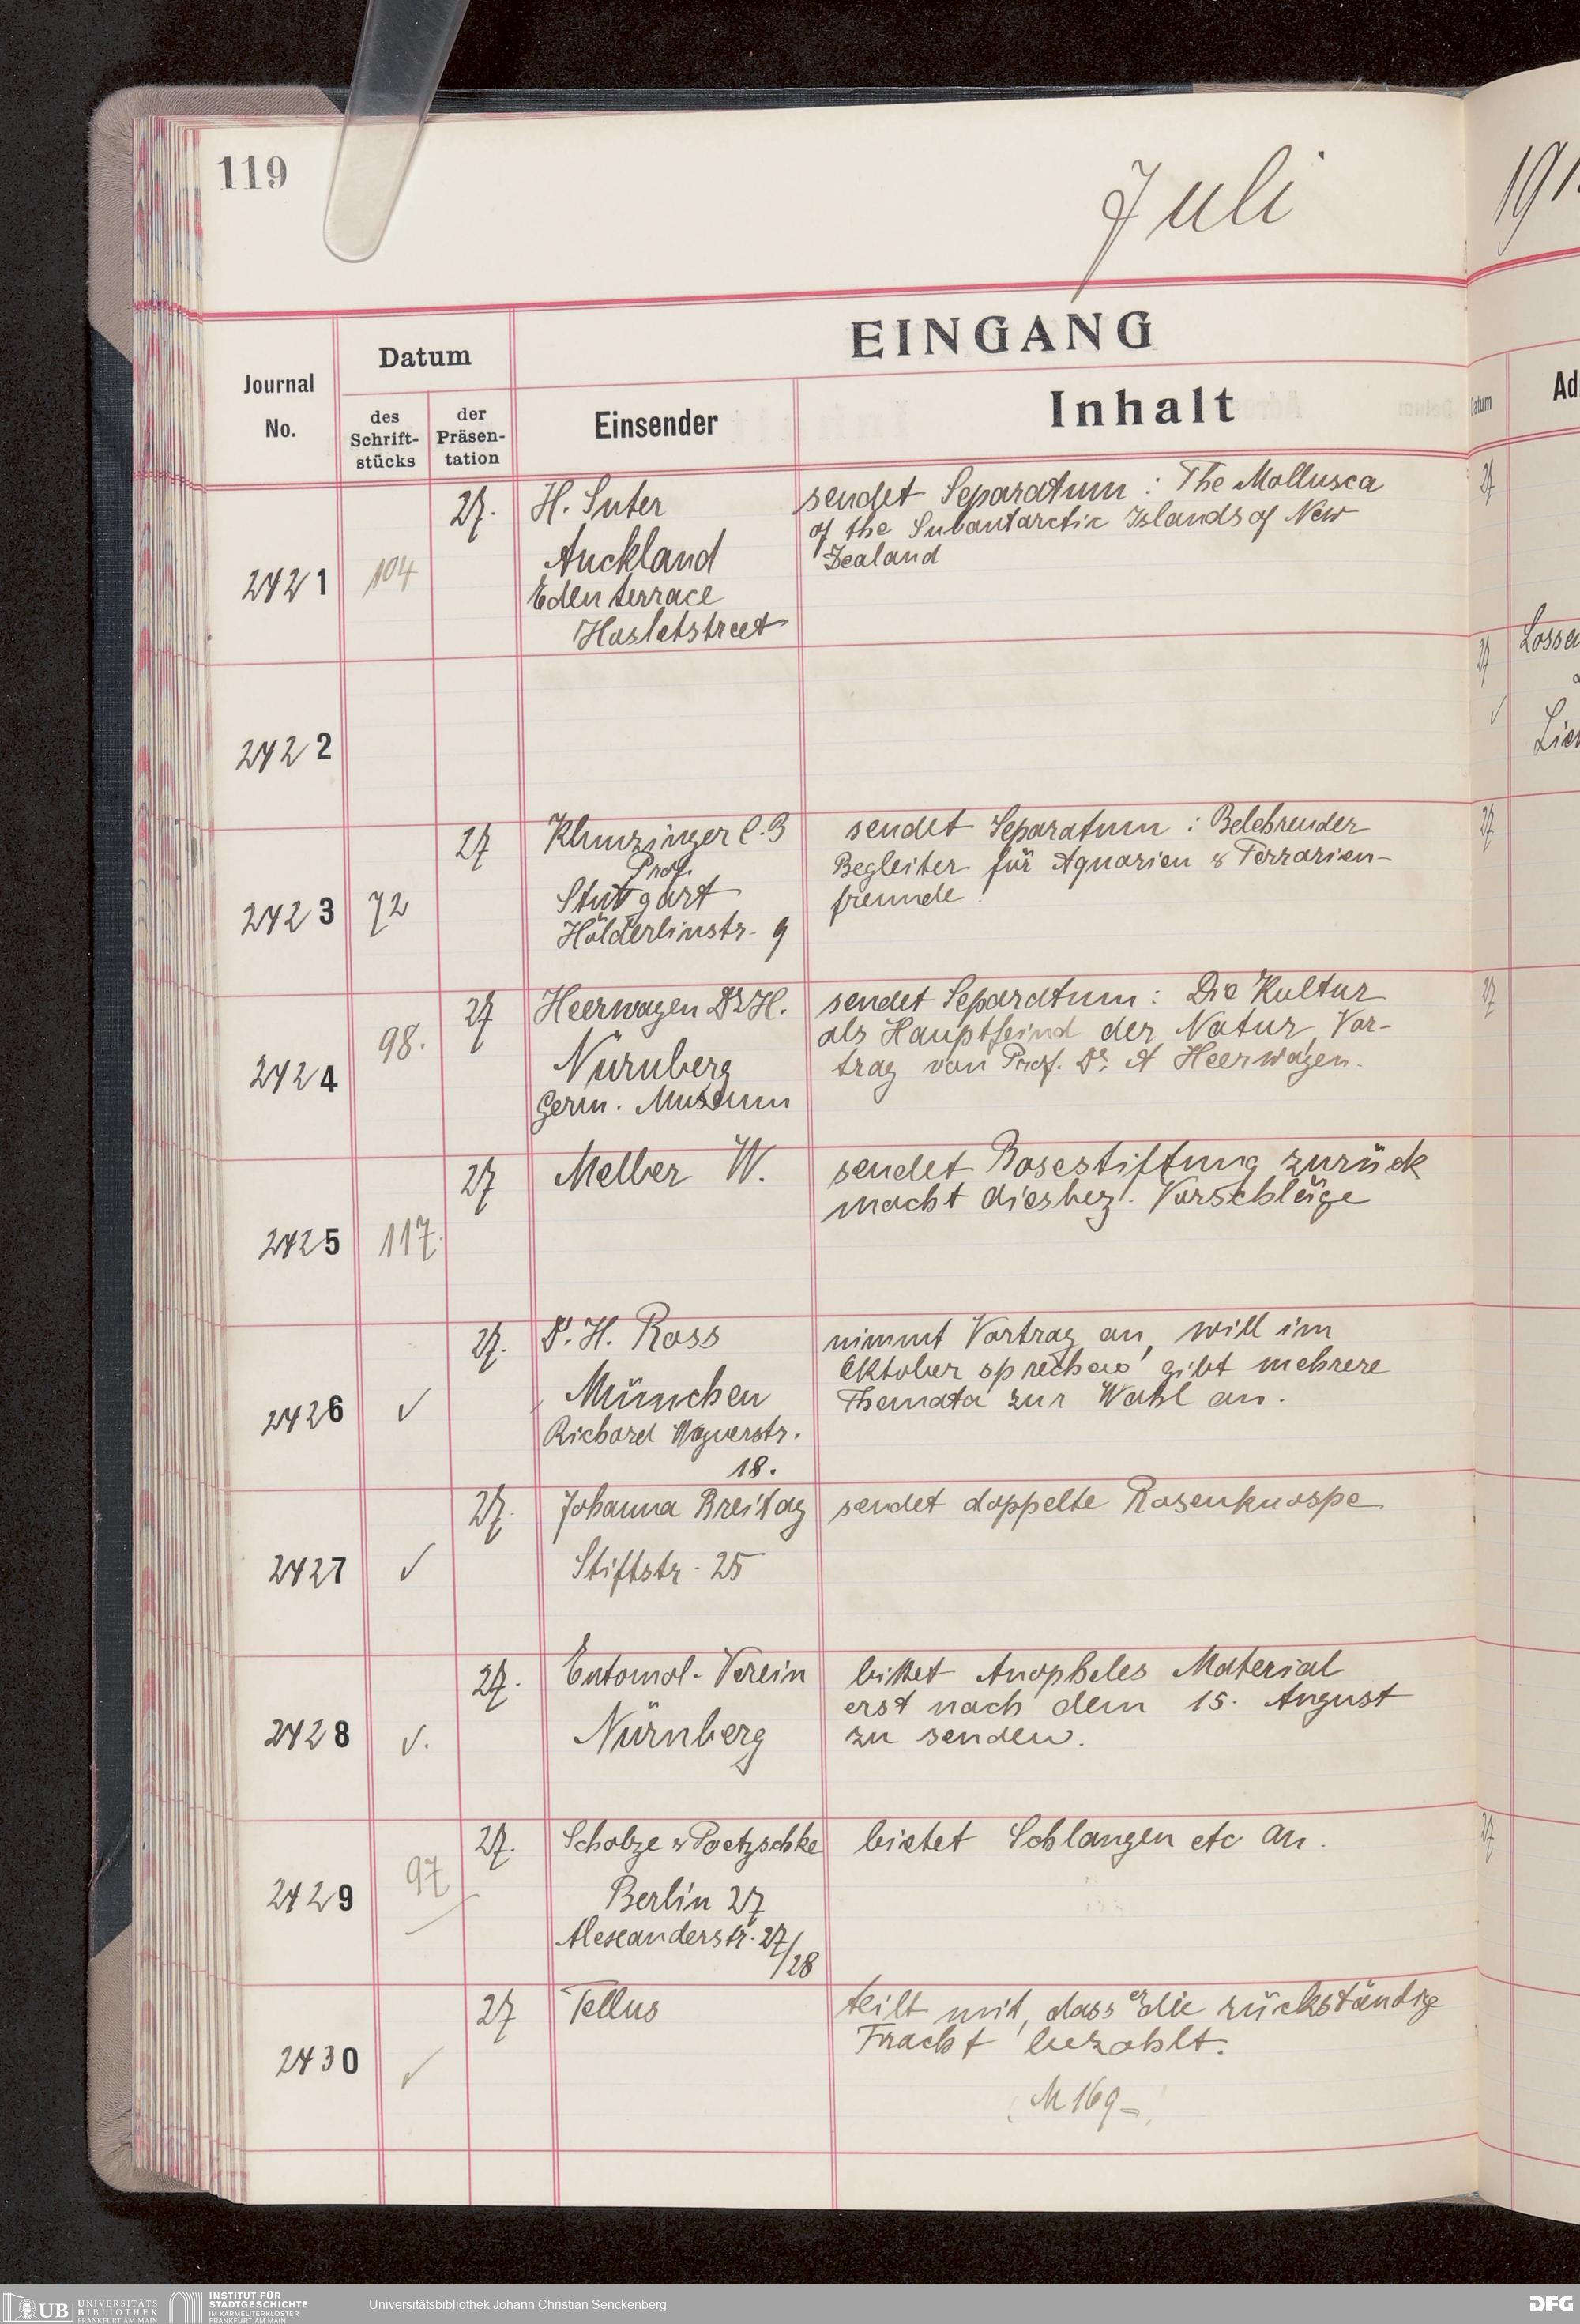 119
Juli
191
EINGANG
Journal
No.
Datum
des
Schrift-
stücks
der
Präsen-
tation
Einsender
Inhalt
Datum
Ad
2421
104
27.
H. Suter
Auckland
Eden terrace
Hasletstreet
sendet Separatum: The Mollusca
of the Subantarctic Islands of New
Zealand
27
2422
27
Losse
Lie
2423
72
27
Klunzinger C. B
Prof.
Stuttgart
Hölderlinstr. 9
sendet Separatum: Belehrender
Begleiter für Aquarien & Terrarien-
freunde
27
2424
98.
27
Heerwagen Dr H.
Nürnberg
Germ. Museum
sendet Separatum: Die Kultur
als Hauptfeind der Natur, Vor-
trag von Prof. Dr. A Heerwagen.
27
2425
117.
27
Melber W.
sendet Bosestiftung zurück
macht diesbez. Vorschläge
2426
✓
27.
Dr. H. Ross
München
Richard Wagnerstr.
18.
nimmt Vortrag an, will im
Oktober sprechen gibt mehrere
Themata zur Wahl an.
2427
✓
27.
Johanna Breitag
Stiftstr. 25
sendet doppelte Rosenknospe
2428
✓.
27.
Entomol. Verein
Nürnberg
bittet Anopheles Material
erst nach dem 15. August
zu senden.
2429
97
27.
Scholze & Poetzschke
Berlin 27
Alexanderstr. 27/28
bietet Schlangen etc an.
27
2430
✓
27
Tellus
teilt mit, dass er die rückständige
Fracht bezahlt.
(M 169-)
UB UNIVERSITÄTS
BIBLIOTHEK
FRANKFURT AM MAIN
INSTITUT FÜR
STADTGESCHICHTE
IM KARMELITERKLOSTER
FRANKFURT AM MAIN
Universitätsbibliothek Johann Christian Senckenberg
DFG